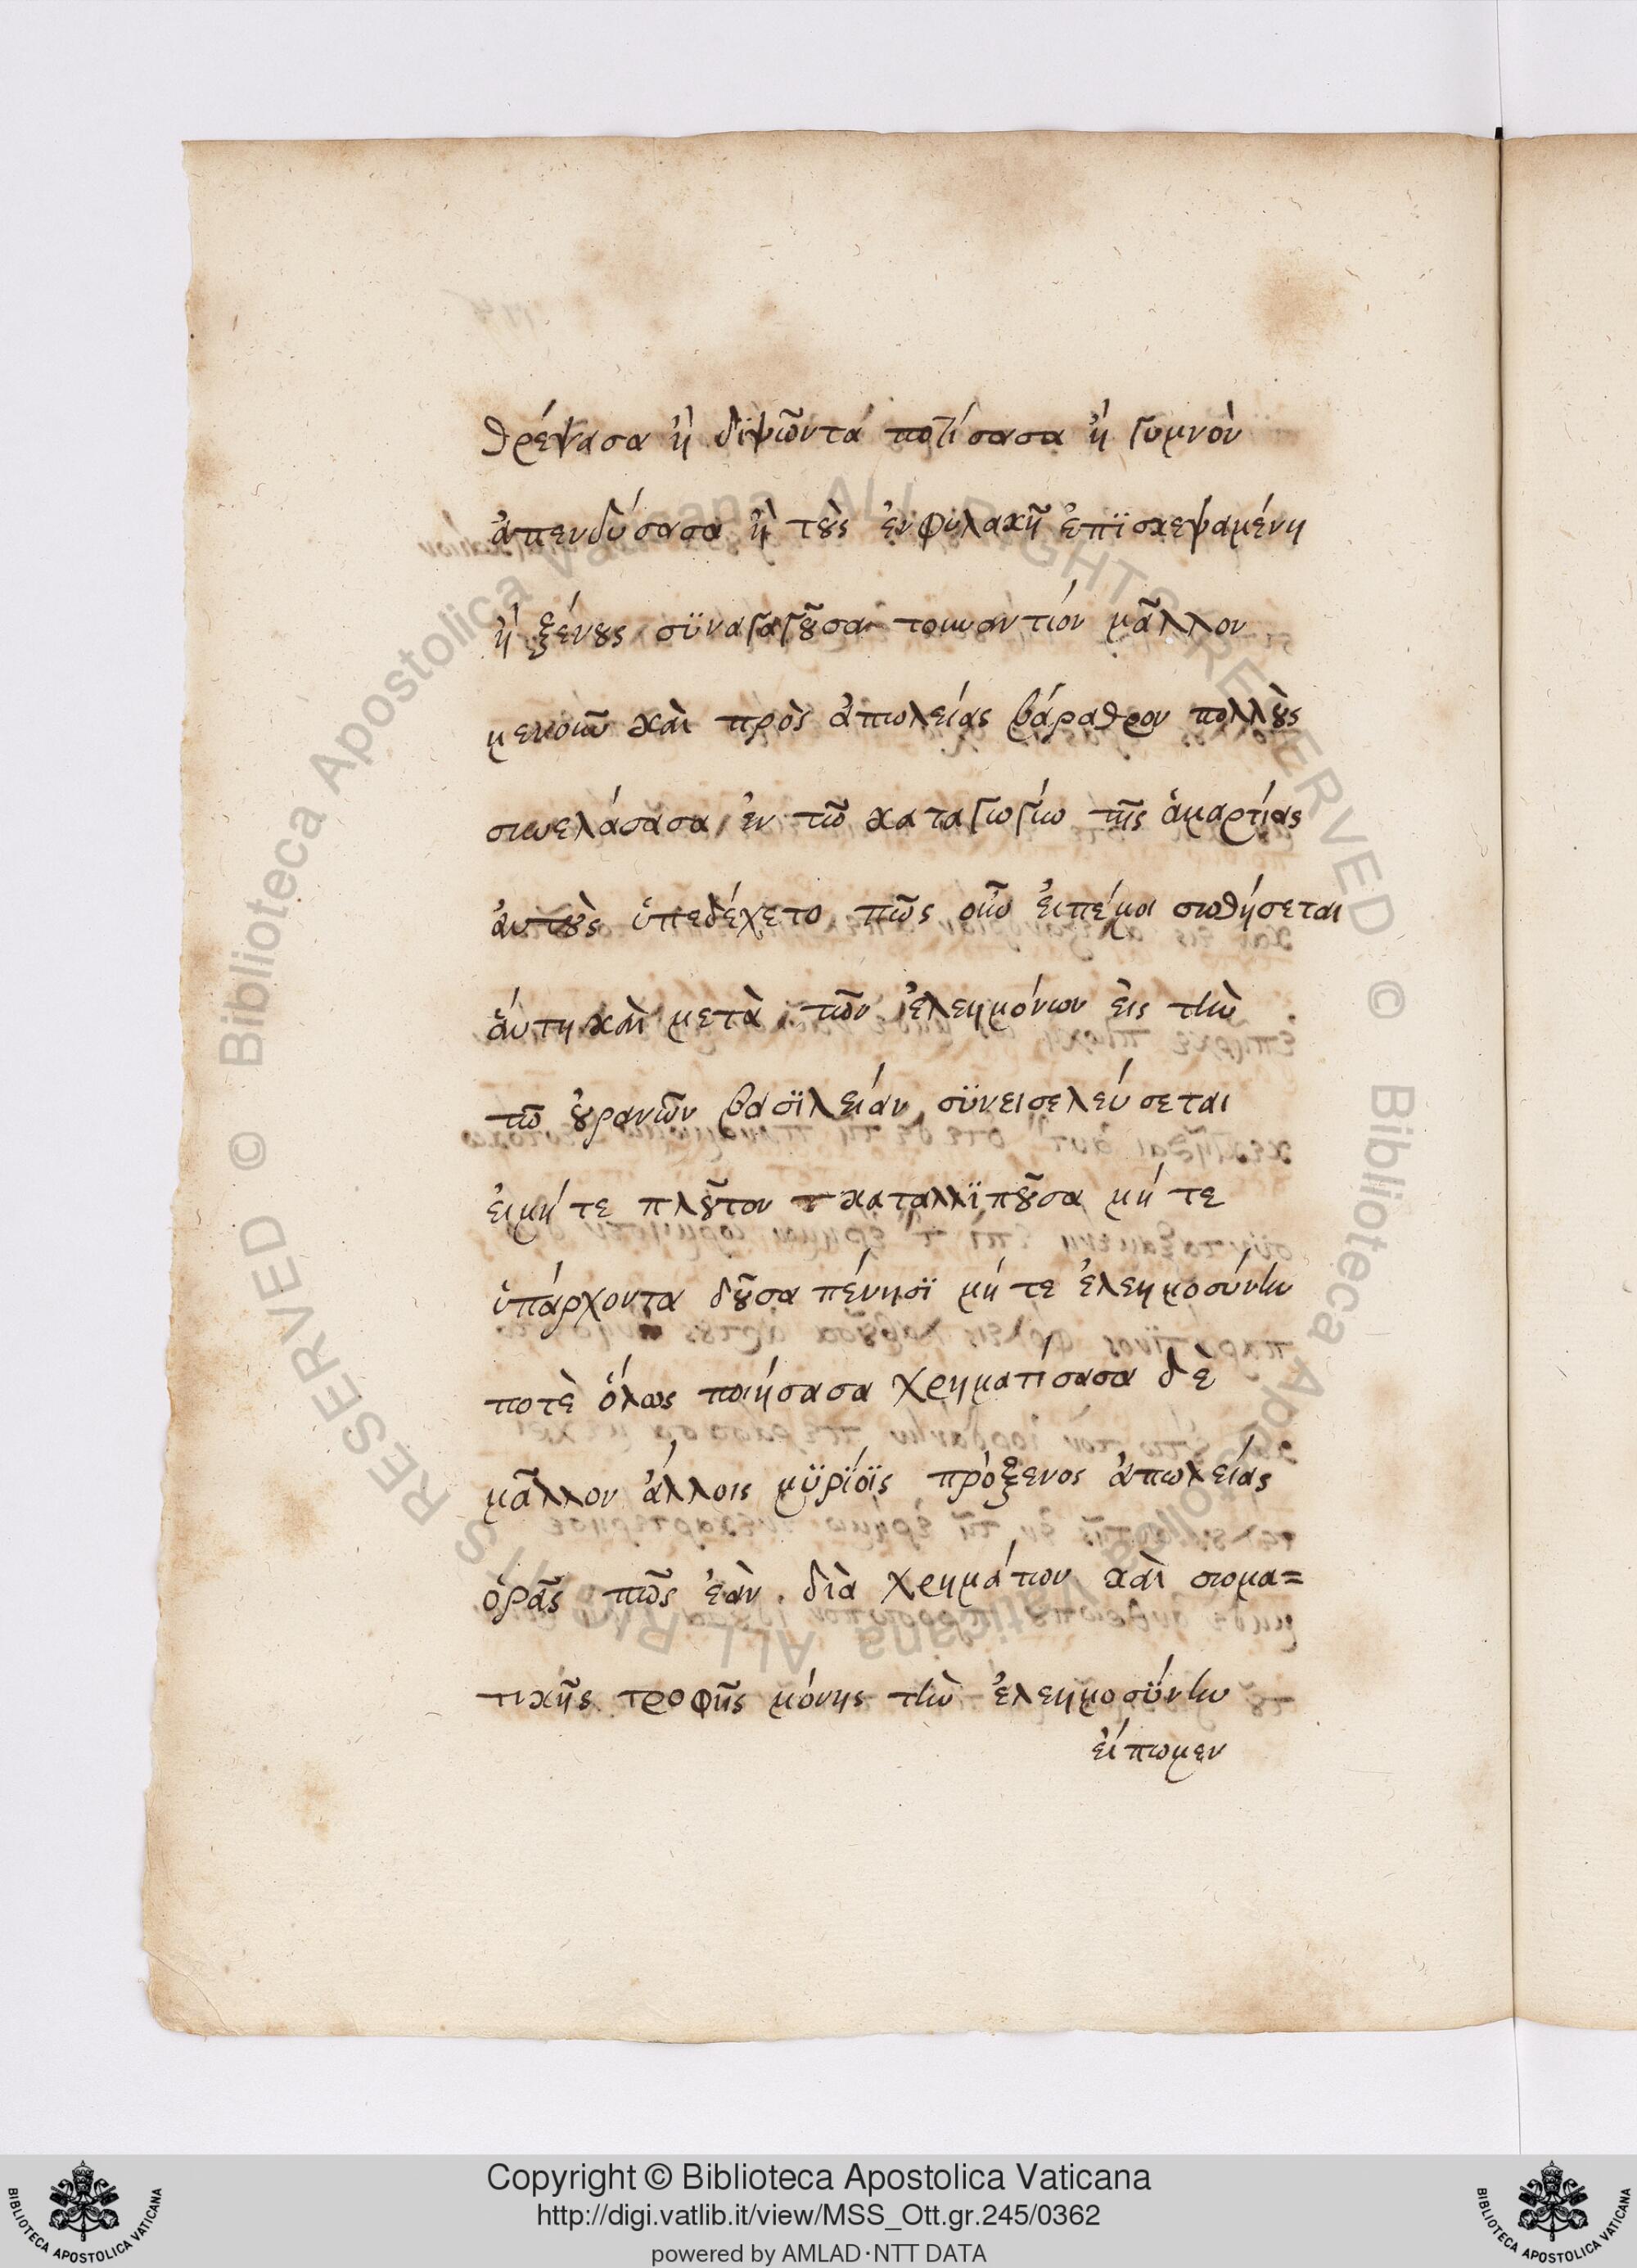 θρέψασα ἢ διψῶντά ποτίσασα ἢ γυμνὸν
ἀπενδύσασα ἢ τοὺς ἐν φυλακῆ ἐπϊσκεψαμένη
ἢ ξένους σϋναγαγοῦσα τουναντίον μᾶλλον
μενοῦν καὶ πρὸς ἀπωλείας βάραθρον πολλοὺς
συνελάσασα ἐν τῶ καταγωγίω τῆς ἁμαρτίας
ἀυτοὺς ὑπεδέχετο πῶς οὖν ἐιπέμοι σωθήσεται
ἁύτη καὶ μετὰ τῶν ἐλεημόνων ἐις τὴν
τῶ οὐρανῶν βασϊλείαν σϋνεισελεύσεται
ἐιμήτε πλοῦτον καταλλϊποῦσα μήτε
ὑπάρχοντα δοῦσα πένησϊ μήτε ἐλεημοσύνην
ποτὲ ὅλως ποιήσασα χρηματίσασα δὲ
μᾶλλον ἄλλοις μϋρίοϊς πρόξενος ἀπωλείας
ὁρᾶς πῶς ἐὰν διὰ χρημάτων καὶ σωμα=
τικῆς τροφῆς μόνης τὴν ἐλεημοσΰνην
ἐίπωμεν
Copyright © Biblioteca Apostolica Vaticana
http://digi.vatlib.it/view/MSS_Ott.gr.245/0362
powered by AMLAD·NTT DATA
BIBLIOTECA APOSTOLICA VATICANA
BIBLIOTECA APOSTOLICA VATICANA
© Biblioteca Apostolica Vaticana ALL RIGHTS RESERVED
© Biblioteca Apostolica Vaticana ALL RIGHTS RESERVED